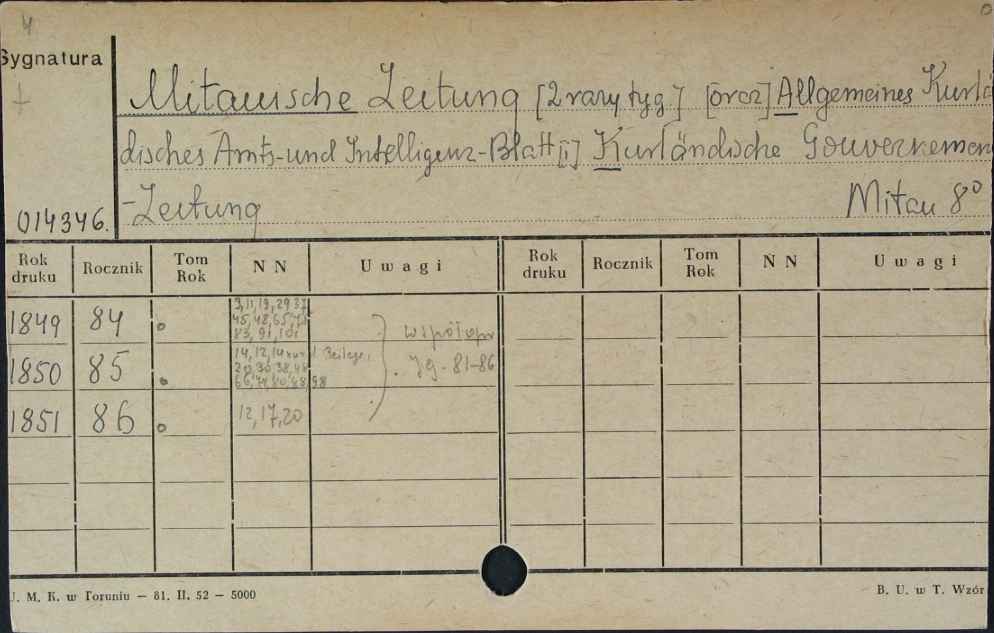 4
Sygnatura
Mitauische Zeitung [2 razy tyg.] [oraz] Allgemeines Kurlä
disches Amts-und Intelligenz-Blatt [i] Kurländische Gouvernemen
-Zeitung Mitau 8°
014346.
Rok druku Rocznik Tom Rok N N Uwagi Rok druku Rocznik Tom Rok N N Uwagi
1849 84 9, 11, 19, 29
współopr
1850 85 14, 12, 14 Beilage,
Jg. 81-86
1851 86 12, 17, 20
U. M. K. w Toruniu — 81. II. 52 — 5000 B. U. w T. Wzór